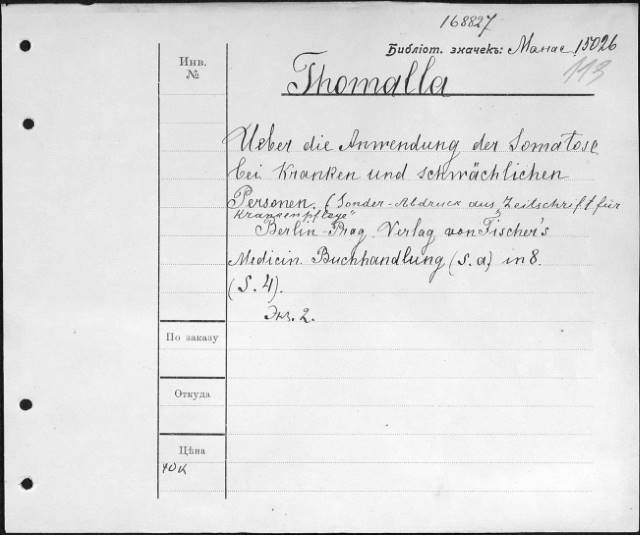 168827
Библіот. значекъ: Манас. 15026
113
Инв.
№
Thomalla
Ueber die Anwendung der Somatose
bei Kranken und schwächlichen
Personen. (Sonder-Abdruck aus "Zeitschrift für
Krankenpflege"
Berlin-Prag. Verlag von Fischer's
Medicin. Buchhandlung (S. a) in 8.
(S. 4).
Экз. 2.
По заказу
Откуда
Цѣна
40 к